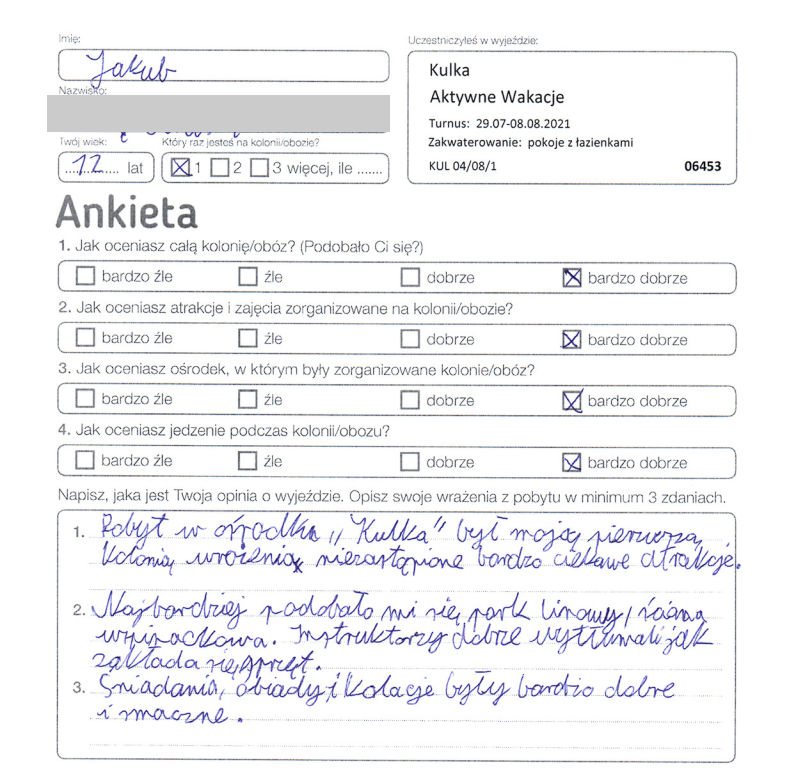 Imię:
Jakub
Nazwisko:
Twój wiek:
12 lat
Który raz jesteś na kolonii/obozie?
1 2 3 więcej, ile .......
Uczestniczyłeś w wyjeździe:
Kulka
Aktywne Wakacje
Turnus: 29.07-08.08.2021
Zakwaterowanie: pokoje z łazienkami
KUL 04/08/1 06453
Ankieta
1. Jak oceniasz całą kolonię/obóz? (Podobało Ci się?)
bardzo źle źle dobrze bardzo dobrze
2. Jak oceniasz atrakcje i zajęcia zorganizowane na kolonii/obozie?
bardzo źle źle dobrze bardzo dobrze
3. Jak oceniasz ośrodek, w którym były zorganizowane kolonie/obóz?
bardzo źle źle dobrze bardzo dobrze
4. Jak oceniasz jedzenie podczas kolonii/obozu?
bardzo źle źle dobrze bardzo dobrze
Napisz, jaka jest Twoja opinia o wyjeździe. Opisz swoje wrażenia z pobytu w minimum 3 zdaniach.
1. Pobyt w ośrodku „Kulka" był moją pierwszą
kolonią wrażenia niezastąpione bardzo ciekawe atrakcje.
2. Najbardziej podobało mi się park linowy, ściana
wspinaczkowa. Instruktorzy dobrze wytłumali jak
zakłada się sprzęt.
3. Śniadania, obiady i kolacje były bardzo dobre
i smaczne.